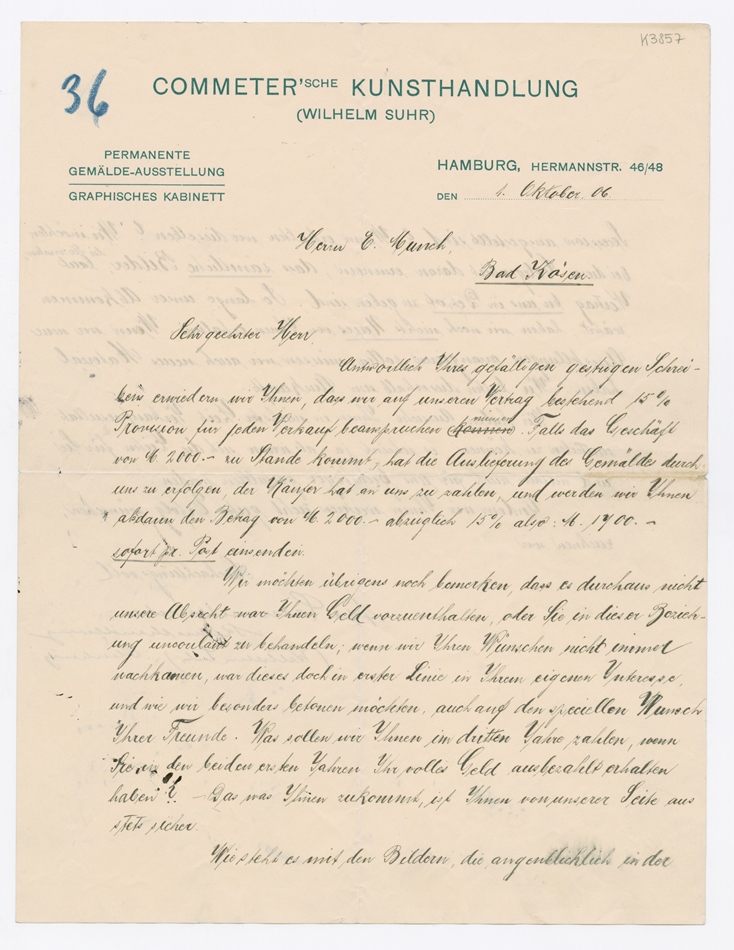 K3857
36
COMMETER'SCHE KUNSTHANDLUNG
(WILHELM SUHR)
PERMANENTE
GEMÄLDE-AUSSTELLUNG
GRAPHISCHES KABINETT
HAMBURG, HERMANNSTR. 46/48
DEN 1. Oktober. 06.
Herrn E. Munch,
Bad Kösen.
Sehr geehrter Herr,
Antwortlich Ihres gefälligen gestrigen Schrei-
bens erwiedern wir Ihnen, dass wir auf unseren Vertrag bestehend 15%
Provision für jeden Verkauf beanspruchen können müssen. Falls das Geschäft
von M 2000.- zu Stande kommt, hat die Auslieferung des Gemäldes durch
uns zu erfolgen, der Käufer hat an uns zu zahlen, und werden wir Ihnen
alsdann den Betrag von M. 2000.- abzüglich 15% also: M. 1700.-
sofort pr. Post einsenden.
Wir möchten übrigens noch bemerken, dass es durchaus nicht
unsere Absicht war Ihnen Geld vorzuenthalten, oder Sie in dieser Bezieh-
ung unculant zu behandeln; wenn wir Ihren Wünschen nicht immer
nachkamen, war dieses doch in erster Linie in Ihrem eigenen Interesse,
und wie wir besonders betonen möchten, auch auf den speciellen Wunsch
Ihrer Freunde. Was sollen wir Ihnen im dritten Jahre zahlen, wenn
Sie in den beiden ersten Jahren Ihr volles Geld ausbezahlt erhalten
haben? - Das was Ihnen zukommt, ist Ihnen von unserer Seite aus
stets sicher.
Wie steht es mit den Bildern, die augenblicklich in der